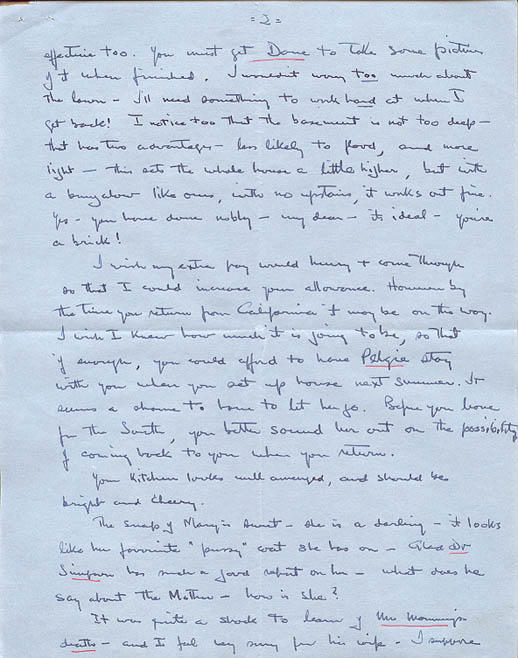 = 3 =
effective too. You must get Dome to take some pictures
of it when finished. I wouldn't worry too much about
the lawn - I'll need something to work hard at when I
get back! I notice too that the basement is not too deep -
that has two advantages - less likely to flood, and more
light - this sets the whole house a little higher, but with
a bungalow like ours, with no upstairs, it works out fine.
Yes - you have done nobly - my dear - its ideal - you're
a brick!
I wish my extra pay would hurry + come through
so that I could increase your allowance. However by
the time you return from California it may be on the way.
I wish I knew how much it is going to be, so that
if enough, you could afford to have Pelgie stay
with you when you set up house next summer. It
seems a shame to have to let her go. Before you leave
for the South, you better sound her out on the possibility
of coming back to you when you return.
Your kitchen looks well arranged, and should be
bright and cheery.
The snap of Mary is sweet - she is a darling - it looks
like her favourite "pussy" coat she has on - Glad Dr
Simpson has such a good report on her - what does he
say about the Mother - how is she?
It was quite a shock to learn of Mr
death - and I feel very sorry for his wife. I suppose